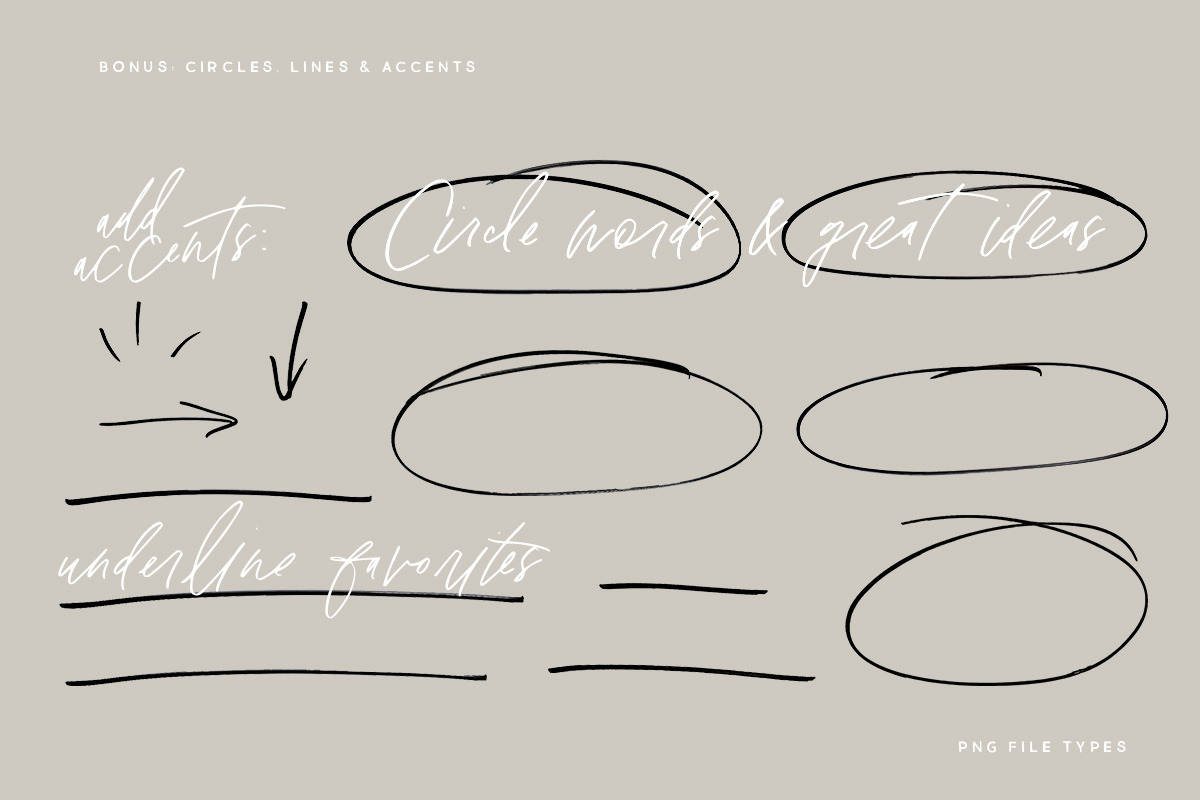 BONUS: CIRCLES, LINES & ACCENTS
add
accents:
Circle words & great ideas
underline favorites
PNG FILE TYPES